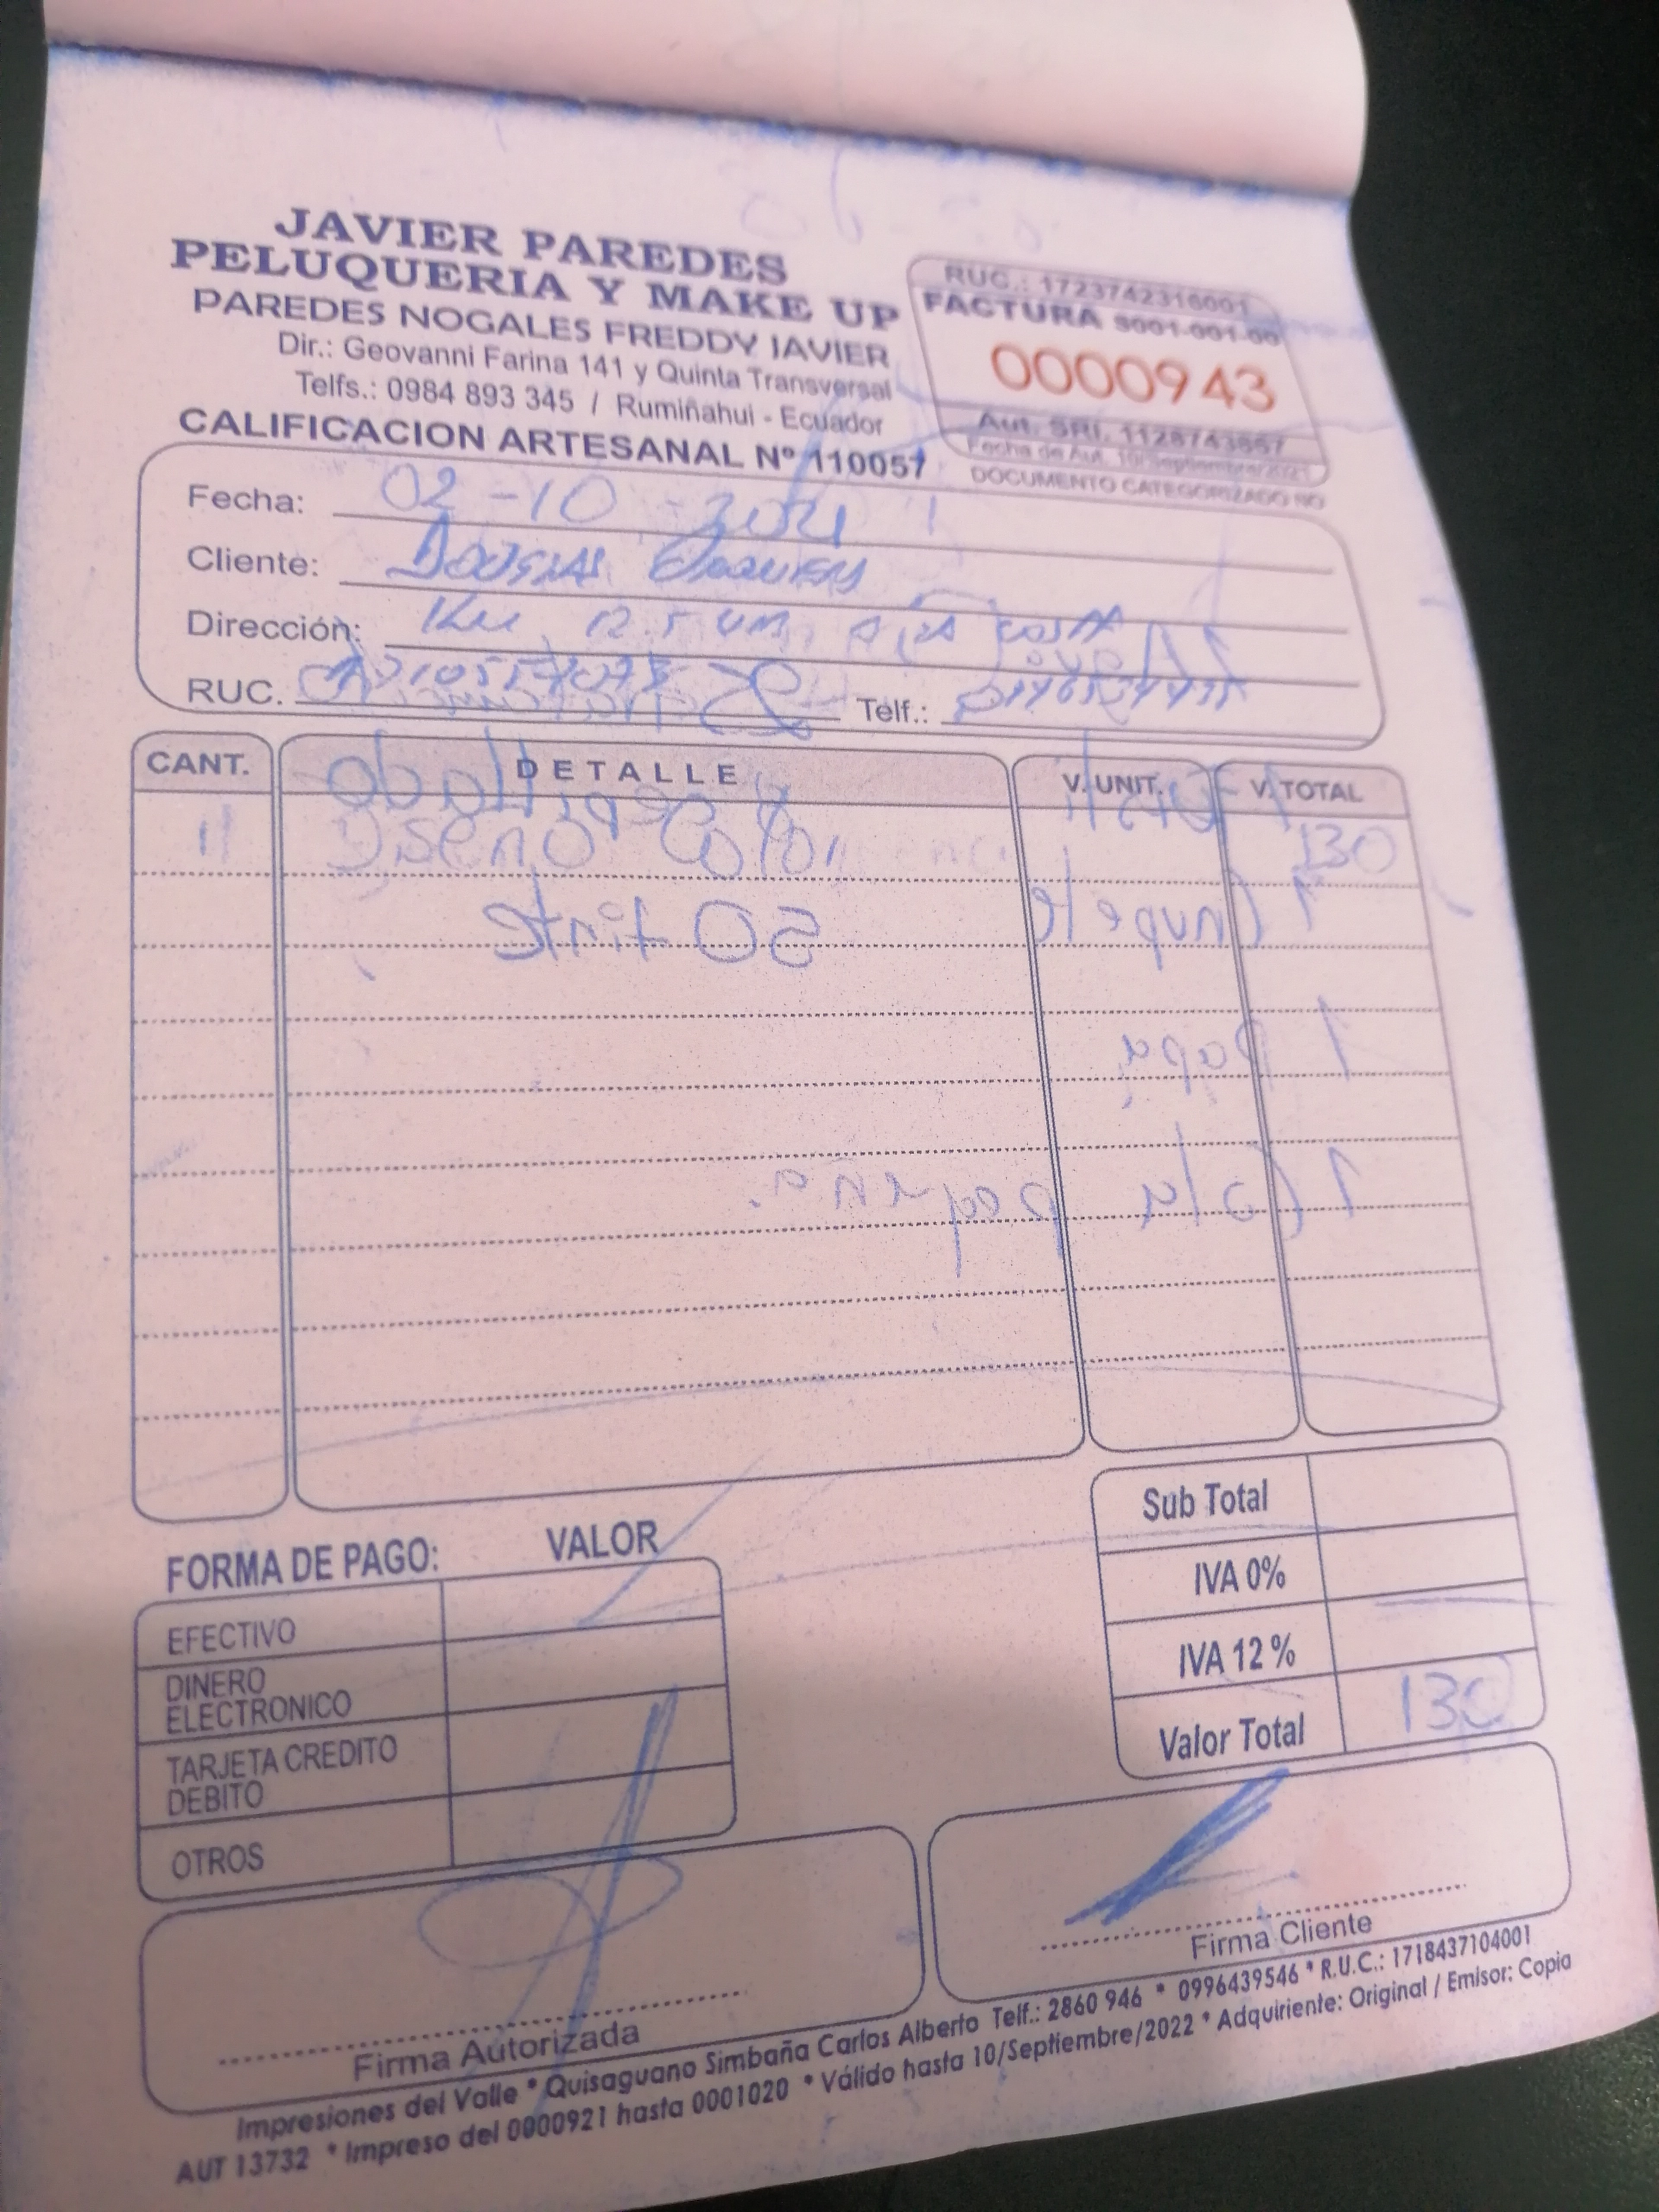 JAVIER PAREDES
PELUQUERIA Y MAKE UP
PAREDES NOGALES FREDDY JAVIER
Dir.: Geovanni Farina 141 y Quinta Transversal
Telfs.: 0984 893 345 / Rumiñahui - Ecuador
CALIFICACION ARTESANAL Nº 110057
RUC.: 1723742316001
FACTURA S001-001-00
0000943
Aut. SRI. 1128743857
Fecha de Aut. 10/Septiembre/2021
DOCUMENTO CATEGORIZADO NO
Fecha: 02-10-2021
Cliente:
Dirección: Km 12.5
RUC.
Telf.:
CANT. DETALLE V. UNIT. V. TOTAL
1 Diseño Color 130
50 tinte
1 papa
1 Cola pequeña.
Sub Total
IVA 0%
IVA 12%
Valor Total 130
FORMA DE PAGO: VALOR
EFECTIVO
DINERO ELECTRONICO
TARJETA CREDITO DEBITO
OTROS
Firma Autorizada
Firma Cliente
Impresiones del Valle * Quisaguano Simbaña Carlos Alberto Telf.: 2860 946 * 0996439546 * R.U.C.: 1718437104001
AUT 13732 * Impreso del 0000921 hasta 0001020 * Válido hasta 10/Septiembre/2022 * Adquiriente: Original / Emisor: Copia